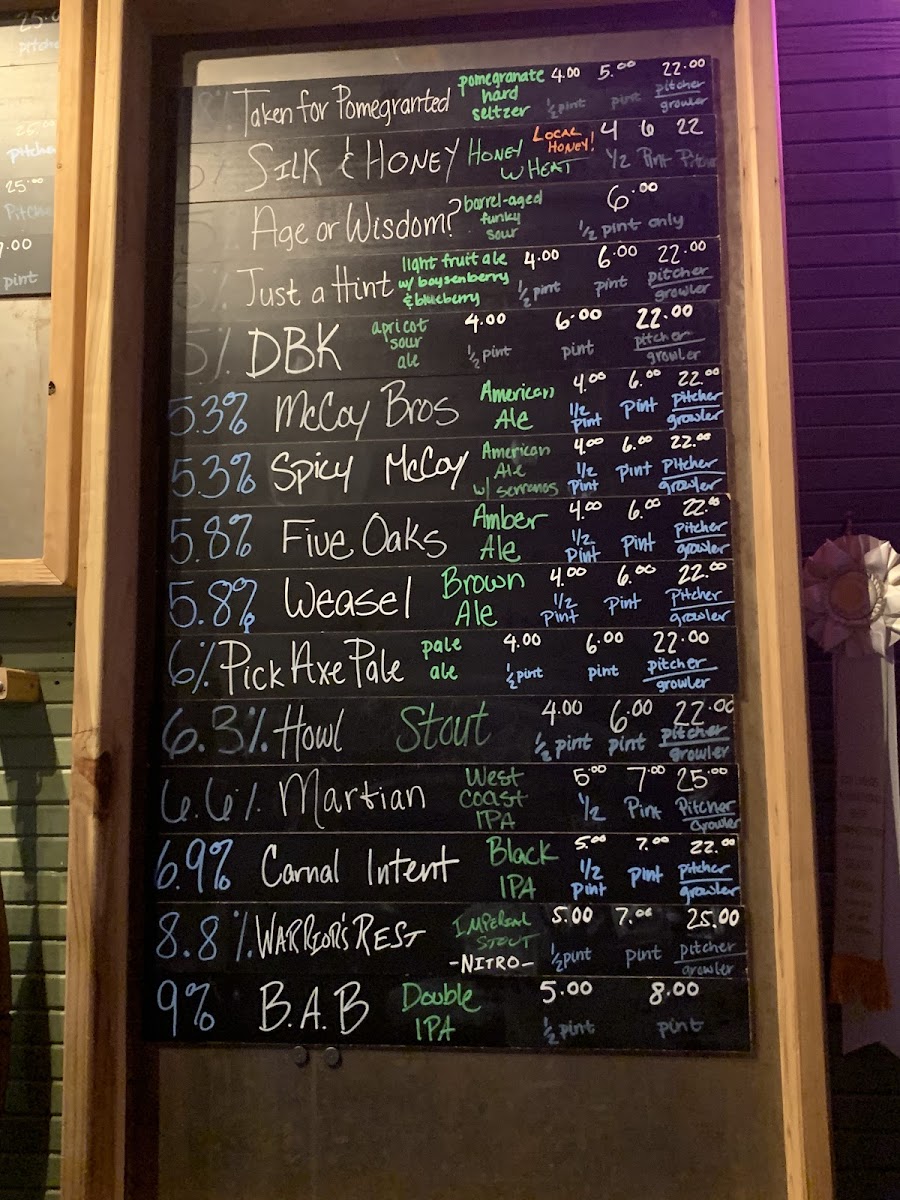 25.0
pitche
25.00
pitche
25.00
Pitche
7.00
pint
8% Taken for Pomegranted pomegranate hard seltzer 4.00 1/2 pint 5.00 pint 22.00 pitcher growler
5% SILK & HONEY HONEY WHEAT LOCAL HONEY! 4 1/2 6 Pint 22 Pitcher
Age or Wisdom? barrel-aged funky sour 6.00 1/2 pint only
% Just a Hint light fruit ale w/ boysenberry & blueberry 4.00 1/2 pint 6.00 pint 22.00 pitcher growler
5% DBK apricot sour ale 4.00 1/2 pint 6.00 pint 22.00 pitcher growler
5.3% McCoy Bros American Ale 4.00 1/2 pint 6.00 pint 22.00 pitcher growler
5.3% Spicy McCoy American Ale w/ serranos 4.00 1/2 pint 6.00 pint 22.00 pitcher growler
5.8% Five Oaks Amber Ale 4.00 1/2 pint 6.00 pint 22.00 pitcher growler
5.8% Weasel Brown Ale 4.00 1/2 pint 6.00 pint 22.00 pitcher growler
6% Pick Axe Pale pale ale 4.00 1/2 pint 6.00 pint 22.00 pitcher growler
6.3% Howl Stout 4.00 1/2 pint 6.00 pint 22.00 pitcher growler
6.6% Martian West Coast IPA 5.00 1/2 7.00 Pint 25.00 Pitcher Growler
6.9% Carnal Intent Black IPA 5.00 1/2 pint 7.00 pint 22.00 pitcher growler
8.8% WARRIOR'S REST IMPERIAL STOUT -NITRO- 5.00 1/2 pint 7.00 pint 25.00 pitcher growler
9% B.A.B Double IPA 5.00 1/2 pint 8.00 pint